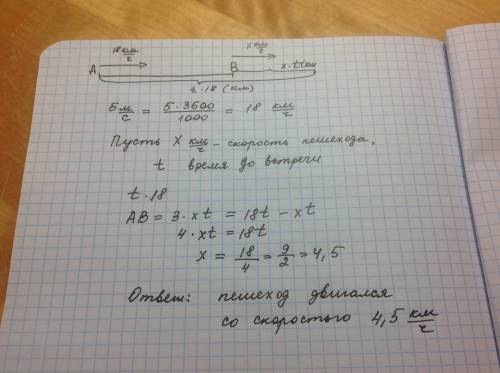 18 км/ч x км/ч
A B x·t(км
t·18 (км)
5 м/с = 5·3600/1000 = 18 км/ч
Пусть x км/ч – скорость пешехода,
t время до встречи
t·18
AB = 3·xt = 18t – xt
4·xt = 18t
x = 18/4 = 9/2 = 4,5
Ответ: пешеход двигался
со скоростью 4,5 км/ч